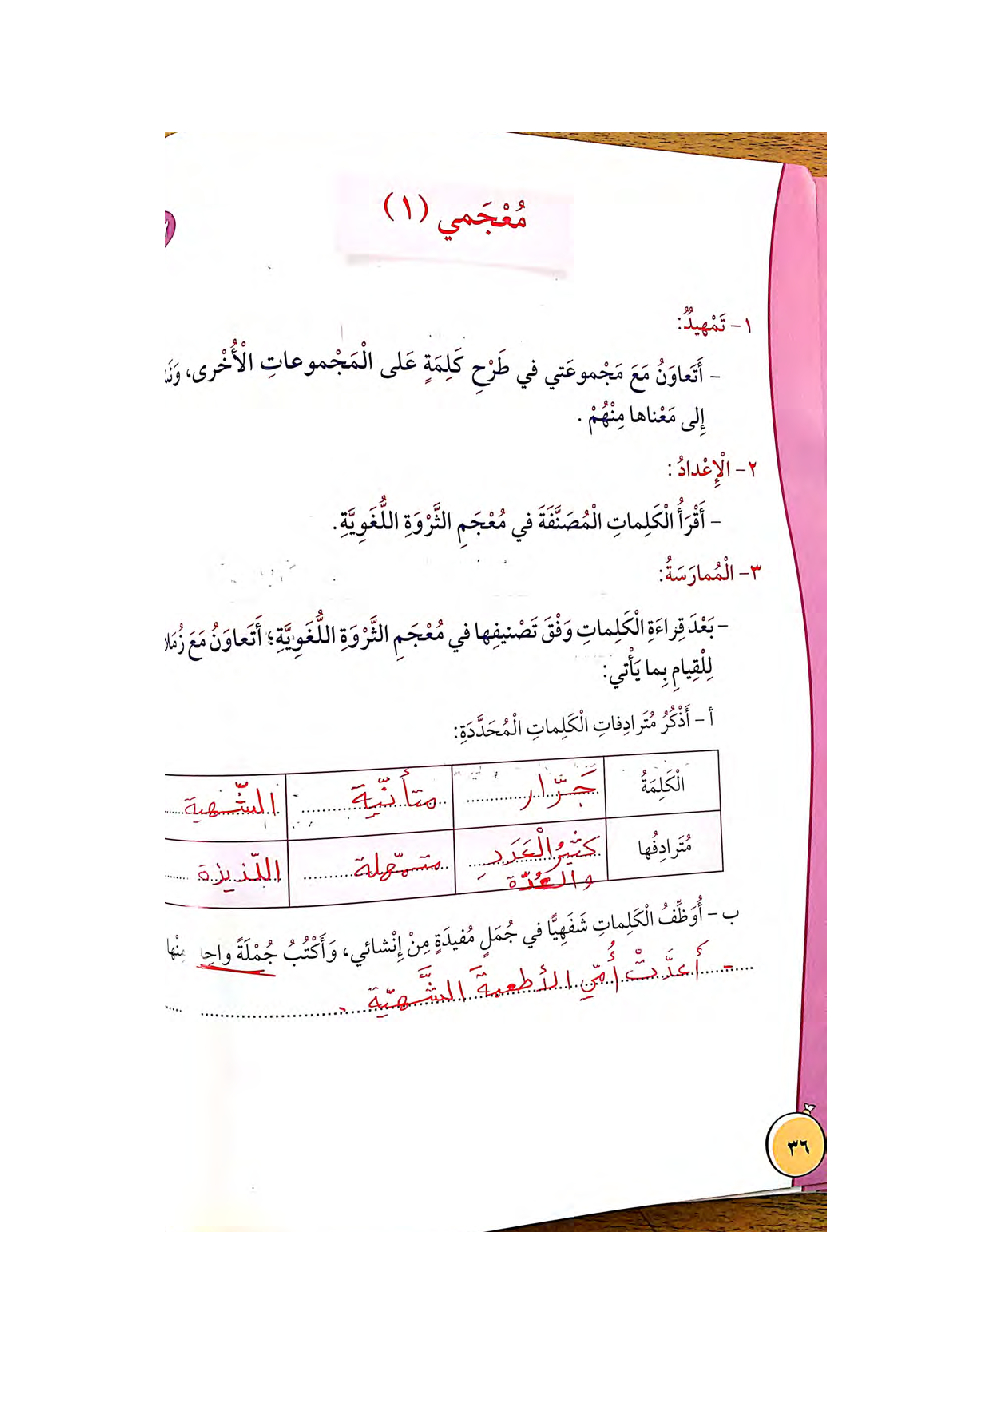 مُعْجَمي (١)
١- تَمْهيدٌ:
- أَتَعاوَنُ مَعَ مَجْموعَتي في طَرْحِ كَلِمَةٍ عَلى الْمَجْموعاتِ الْأُخْرى،
إِلى مَعْناها مِنْهُمْ .
٢- الْإِعْدادُ :
- أَقْرَأُ الْكَلِماتِ الْمُصَنَّفَةَ في مُعْجَمِ الثَّرْوَةِ اللُّغَوِيَّةِ.
٣- الْمُمارَسَةُ:
- بَعْدَ قِراءَةِ الْكَلِماتِ وَفْقَ تَصْنيفِها في مُعْجَمِ الثَّرْوَةِ اللُّغَوِيَّةِ؛ أَتَعاوَنُ مَعَ
لِلْقِيامِ بِما يَأْتي:
أ- أَذْكُرُ مُتَرادِفاتِ الْكَلِماتِ الْمُحَدَّدَةِ:
الْكَلِمَةُ جَرّار متأنّية الشّهية
مُتَرادِفُها كثيرُ الْعَدَدِ متمهّلة اللّذيذة
والعُدّة
ب- أُوَظِّفُ الْكَلِماتِ شَفَهِيًّا في جُمَلٍ مُفيدَةٍ مِنْ إِنْشائي، وَأَكْتُبُ جُمْلَةً مِنْها
- أعدَّتْ أُمّي الأطعمةَ الشَّهيّةَ .
٣٦